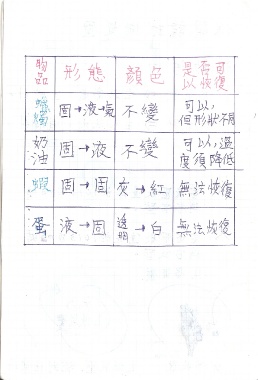 物品 形態 顏色 是否可以恢復
蠟燭 固→液→氣 不變 可以，但形狀不同
奶油 固→液 不變 可以，溫度須降低
蝦 固→固 灰→紅 無法恢復
蛋 液→固 透明→白 無法恢復